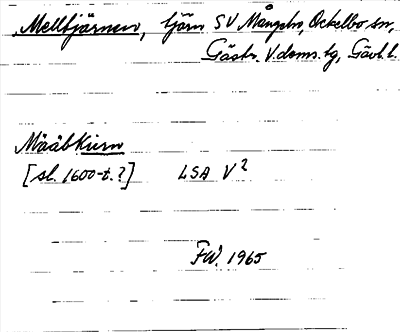 Mellbjärnen, tjärn SV Mångeln, Ockelbo sn,
Gästr. V.doms. tg, Gävl. l.
Määbkiern
[sl. 1600-t.?] LSA V2
FW. 1965